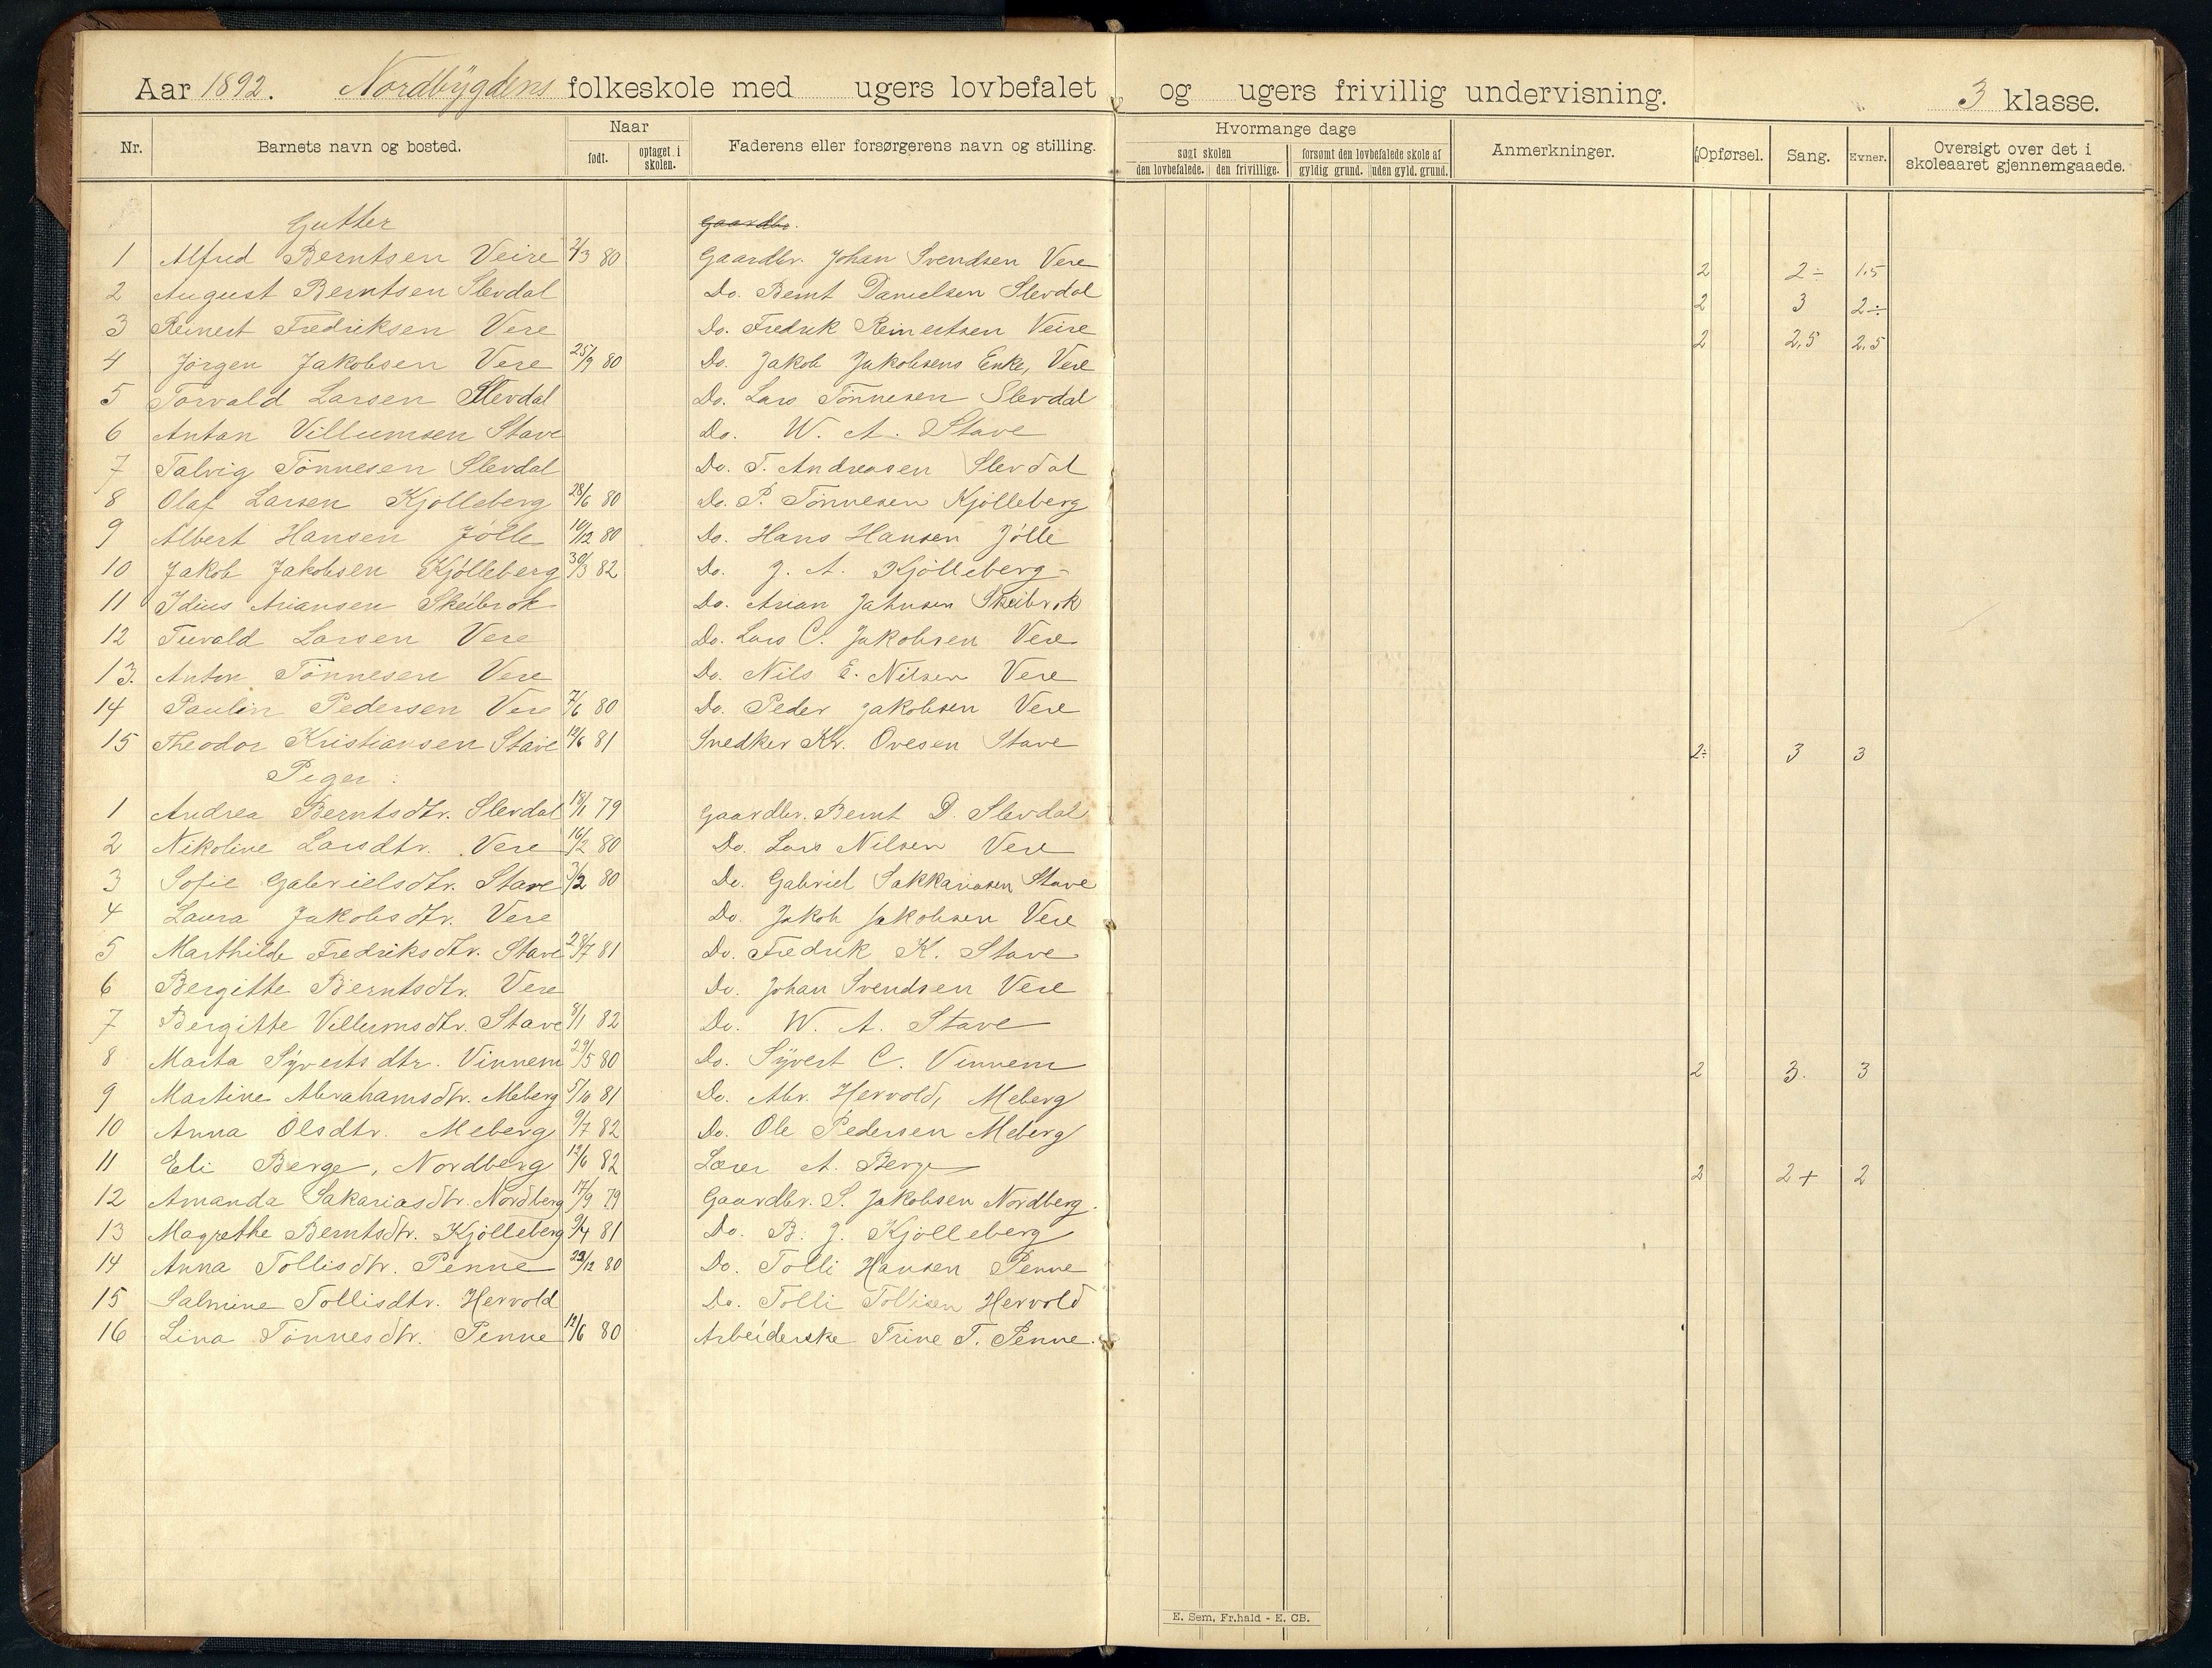 Aar 1892. Nordbÿgdens folkeskole med ugers lovbefalet og ugers frivillig undervisning. 3 klasse.
Nr. Barnets navn og bosted. Naar født. optaget i skolen. Faderens eller forsørgerens navn og stilling. Hvormange dage søgt skolen den lovbefalede. den frivillige. forsømt den lovbefalede skole af gyldig grund. uden gyld. grund. Anmerkninger. Opførsel. Sang. Evner. Oversigt over det i skoleaaret gjennemgaaede.
Gutter Gaardbr.
1 Alfred Berntsen Veire 2/3 80 Gaardbr. Johan Svendsen Vere 2 2÷ 1.5
2 August Berntsen Slevdal Do. Bernt Danielsen Slevdal 2 3 2÷
3 Reinert Fredriksen Vere Do. Fredrik Reinertsen Veire 2 2,5 2.5
4 Jörgen Jakobsen Vere 25/9 80 Do. Jakob Jakobsens Enke, Vere
5 Torvald Larsen Slevdal Do. Lars Tönnesen Slevdal
6 Anton Villumsen Stave Do. W. A. Stave
7 Talvig Tönnesen Slevdal Do. T. Andreasen Slevdal
8 Olaf Larsen Kjölleberg 28/6 80 Do. P. Tönnesen Kjölleberg
9 Albert Hansen Jölle 10/12 80 Do. Hans Hansen Jölle
10 Jakob Jakobsen Kjölleberg 30/3 82 Do. J. A. Kjölleberg
11 Idius Ariansen Skeibrok Do. Arian Jahnsen Skeibrok
12 Tervald Larsen Vere Do. Lars C. Jakobsen Vere
13. Anton Tönnesen Vere Do. Nils E. Nilsen Vere
14 Paulin Pedersen Vere 7/6 80 Do. Peder Jakobsen Vere
15 Theodor Kristiansen Stave 12/6 81 Snedker Kr. Ovesen Stave 2÷ 3 3
Piger:
1 Andrea Berntsdtr. Slevdal 18/1 79 Gaardbr. Bernt D. Slevdal
2 Nikoline Larsdtr. Vere 16/2 80 Do. Lars Nilsen Vere
3 Sofie Gabrielsdtr. Stave 3/2 80 Do. Gabriel Sakkariasen Stave
4 Laura Jakobsdtr. Vere Do. Jakob Jakobsen Vere
5 Marthilde Fredriksdtr. Stave 28/7 81 Do. Fredrik K. Stave
6 Bergitte Berntsdtr. Vere Do. Johan Svendsen Vere
7 Bergitte Villumsdtr. Stave 8/1 82 Do. W. A. Stave
8 Marta Sÿvertsdtr. Vinnem 29/5 80 Do. Sÿvert C. Vinnem 2 3. 3
9 Martine Abrahamsdtr. Meberg 5/10 81 Do. Abr. Hervold, Meberg
10 Anna Olsdtr. Meberg 9/7 82 Do. Ole Pedersen Meberg
11 Eli Berge, Nordberg 12/6 82 Lærer A. Berge 2 2+ 2
12 Amanda Sakariasdtr. Nordberg 17/9 79 Gaardbr. S. Jakobsen Nordberg.
13 Magrethe Berntsdtr. Kjölleberg 9/4 81 Do. B. J. Kjölleberg
14 Anna Tollisdtr. Penne 29/12 80 Do. Tolli Hansen Penne
15 Salmine Tollisdtr. Hervold Do. Tolli Tollisen Hervold
16 Lina Tönnesdtr. Penne 12/6 80 Arbeiderske Trine T. Penne.
E. Sem, Fr.hald - E. CB.